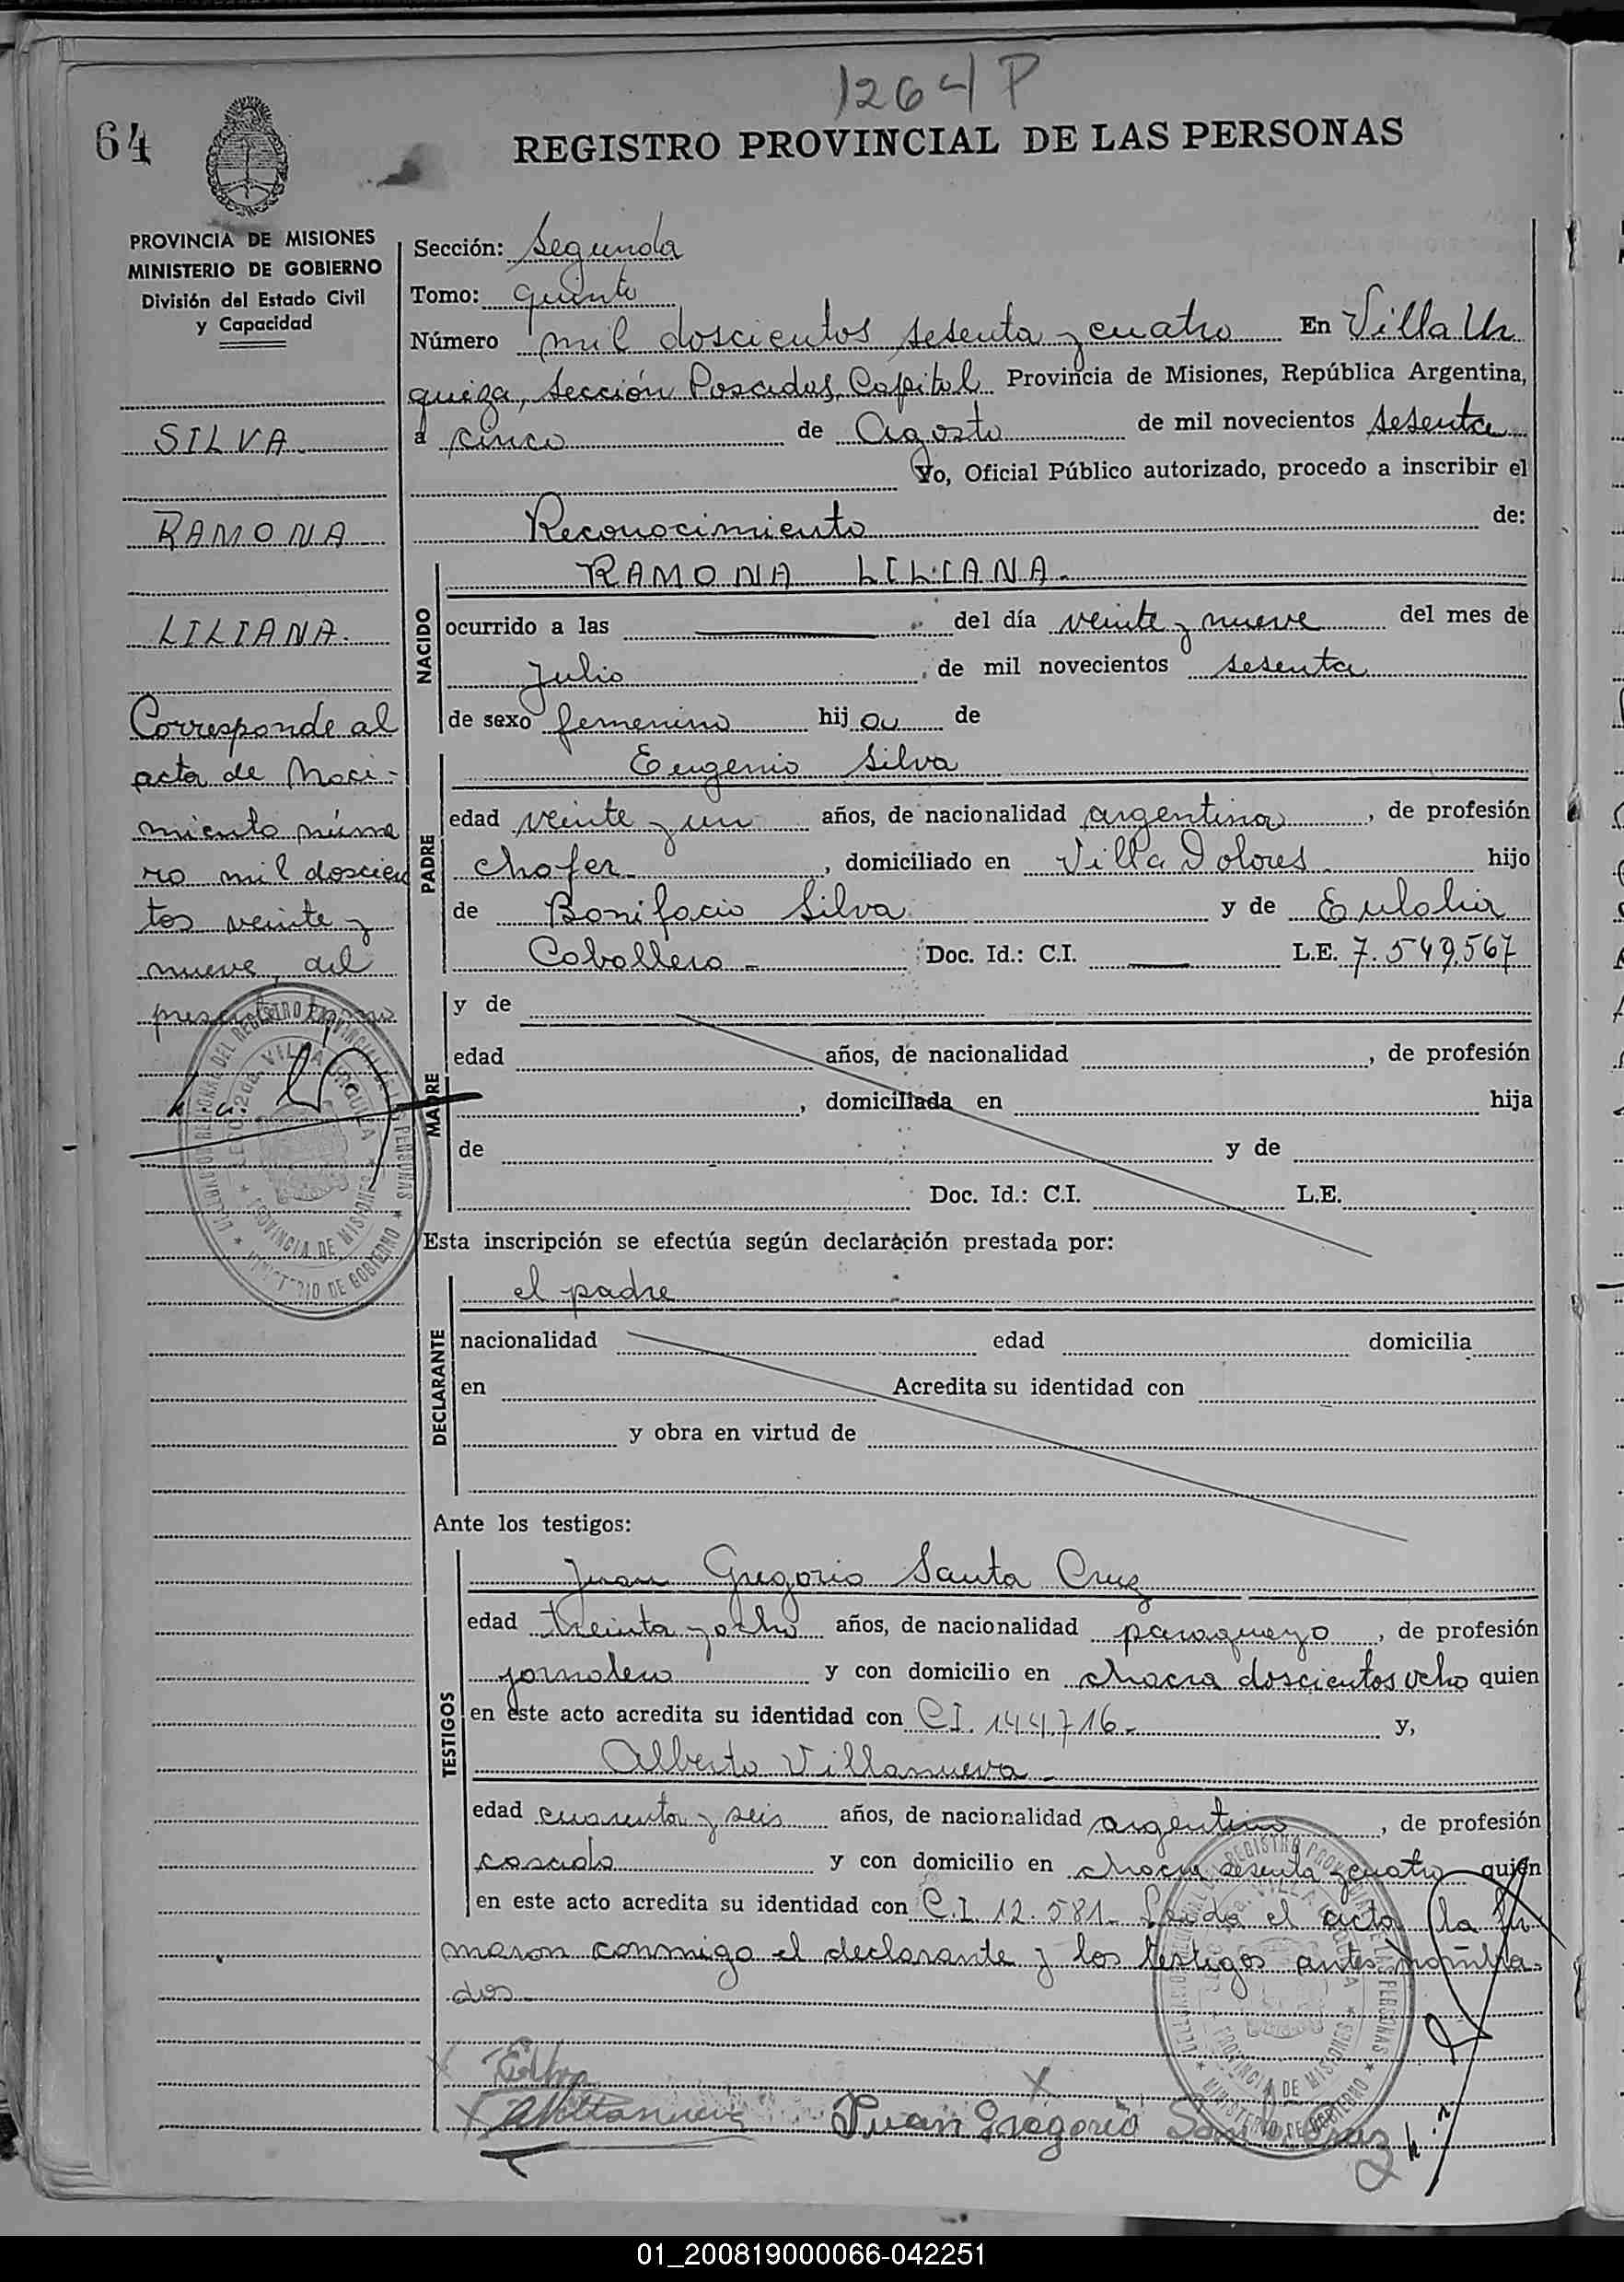 1264 P
64
REGISTRO PROVINCIAL DE LAS PERSONAS
PROVINCIA DE MISIONES
MINISTERIO DE GOBIERNO
División del Estado Civil
y Capacidad
SILVA
RAMONA
LILIANA.
Corresponde al
acta de Naci-
miento núme
ro mil doscien
tos veinte y
nueve, del
presente tomo
Sección: Segunda
Tomo: quinto
Número mil doscientos sesenta y cuatro En Villa Ur
quiza, Sección Posadas, Capital Provincia de Misiones, República Argentina,
a cinco de Agosto de mil novecientos sesenta
Yo, Oficial Público autorizado, procedo a inscribir el
Reconocimiento de:
NACIDO
RAMONA LILIANA.
ocurrido a las del día veinte y nueve del mes de
Julio, de mil novecientos sesenta
de sexo femenino hija de
PADRE
Eugenio Silva
edad veinte y un años, de nacionalidad argentina, de profesión
chofer, domiciliado en Villa Dolores hijo
de Bonifacio Silva y de Eulalia
Caballero - Doc. Id.: C.I. — L.E. 7.549.567
MADRE
y de
edad años, de nacionalidad , de profesión
, domiciliada en hija
de y de
Doc. Id.: C.I. L.E.
Esta inscripción se efectúa según declaración prestada por:
DECLARANTE
el padre
nacionalidad edad domicilia
en Acredita su identidad con
y obra en virtud de
Ante los testigos:
TESTIGOS
Juan Gregorio Santa Cruz
edad treinta y ocho años, de nacionalidad paraguayo, de profesión
jornalero y con domicilio en chacra doscientos ocho quien
en este acto acredita su identidad con C.I. 144.716- y,
Alberto Villanueva -
edad cuarenta y seis años, de nacionalidad argentino, de profesión
y con domicilio en chacra sesenta y cuatro quien
en este acto acredita su identidad con C.I. 12.581- Leída el acta la fir
maron conmigo el declarante y los testigos antes nombra
dos-
ESilva
AVillanueva
Juan Gregorio Santa Cruz
01_200819000066-042251